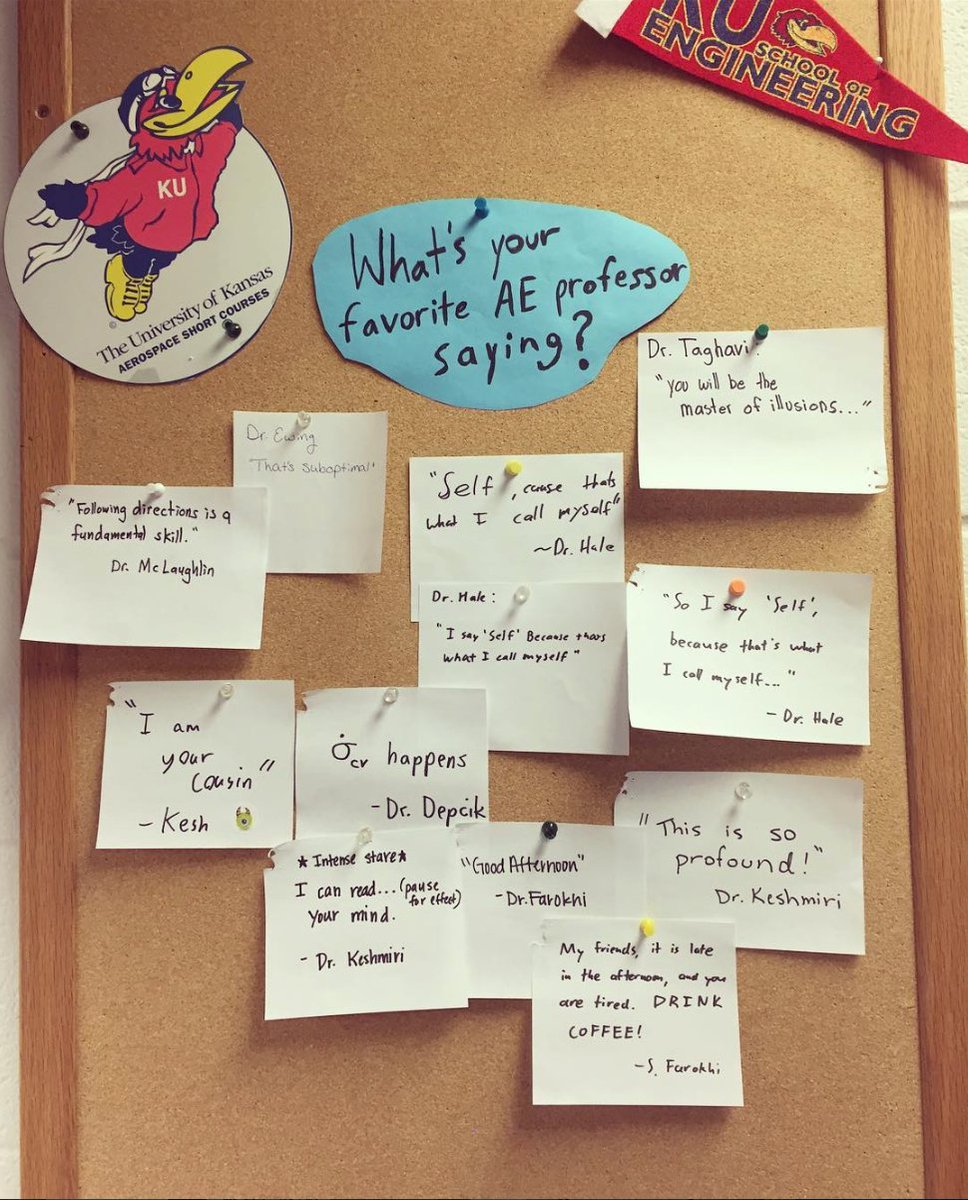 KU
ENGINEERING
SCHOOL OF
KU
The University of Kansas
AEROSPACE SHORT COURSES
What's your
favorite AE professor
saying?
Dr. Taghavi:
"you will be the
master of illusions..."
Dr. Ewing
"That's suboptimal"
"Self, cause thats
what I call myself"
~Dr. Hale
"Following directions is a
fundamental skill."
Dr. McLaughlin
Dr. Hale:
"I say 'Self' Because thats
what I call myself"
"So I say 'Self',
because that's what
I call myself..."
- Dr. Hale
"I am
your
cousin"
- Kesh
σ̇cv happens
- Dr. Depcik
"This is so
profound!"
Dr. Keshmiri
★ Intense stare ★
I can read... (pause
for effect)
your mind.
- Dr. Keshmiri
"Good Afternoon"
- Dr. Farokhi
My friends, it is late
in the afternoon, and you
are tired. DRINK
COFFEE!
- S. Farokhi